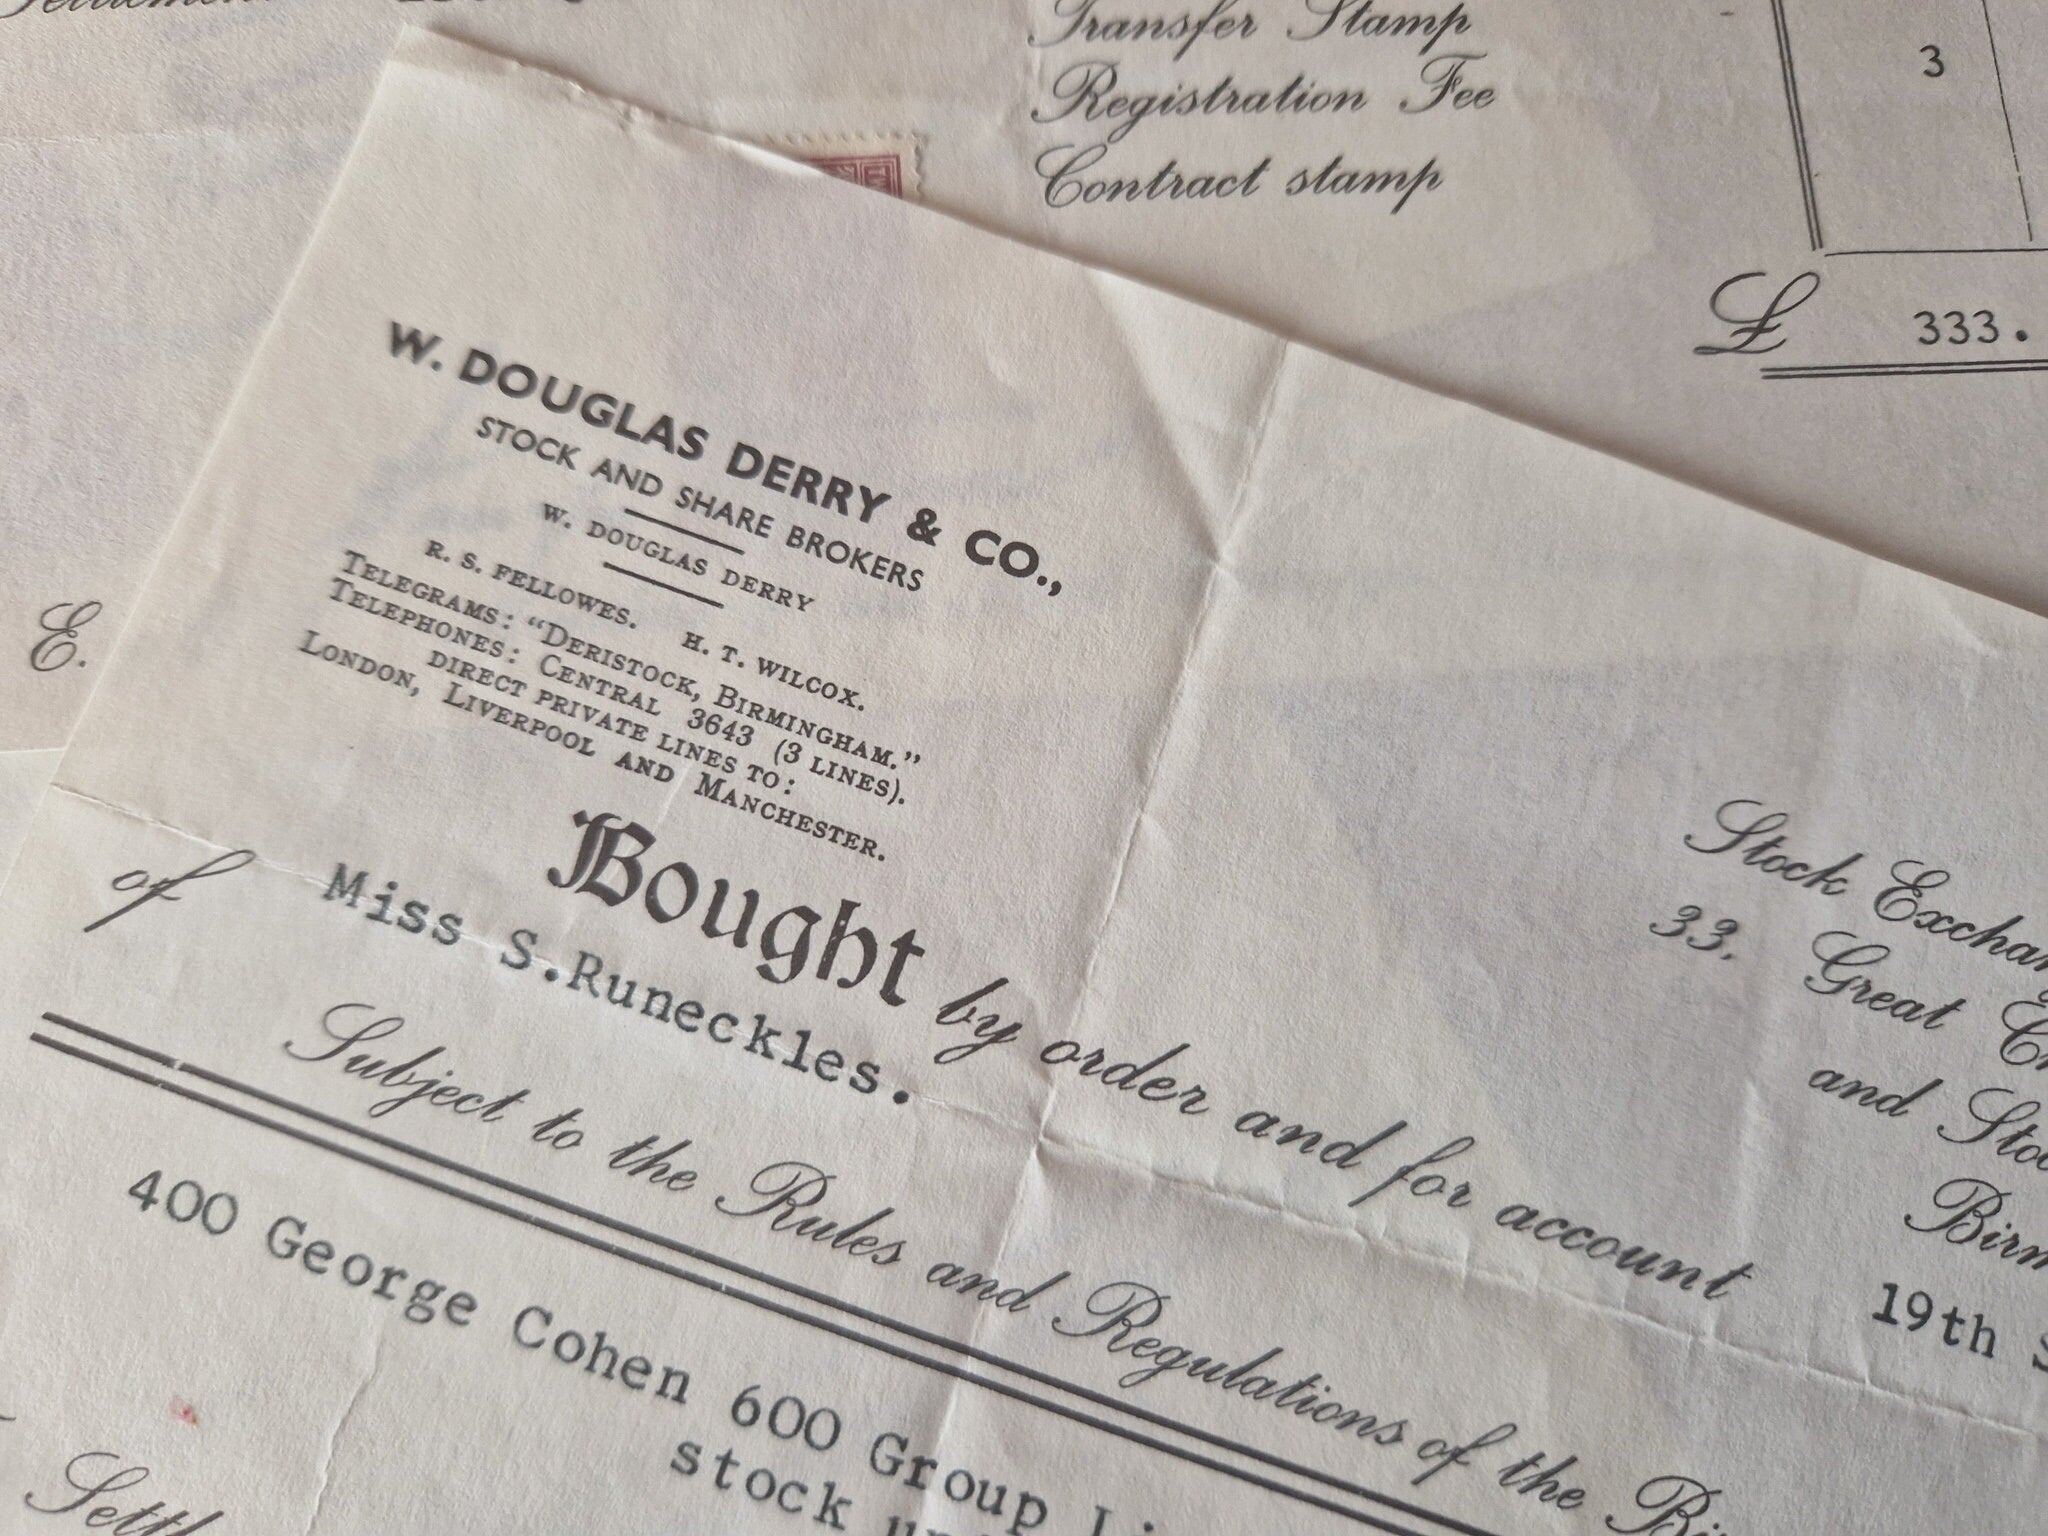 Transfer Stamp
3
Registration Fee
Contract stamp
£ 333.
E.
W. DOUGLAS DERRY & CO.,
STOCK AND SHARE BROKERS
W. DOUGLAS DERRY
R. S. FELLOWES. H. T. WILCOX.
TELEGRAMS: "DERISTOCK, BIRMINGHAM."
TELEPHONES: CENTRAL 3643 (3 LINES).
DIRECT PRIVATE LINES TO:
LONDON, LIVERPOOL AND MANCHESTER.
Stock
33, Great
and
Bought by order and for account
19th
of Miss S.Runeckles.
Subject to the Rules and Regulations of the
400 George Cohen 600 Group
stock